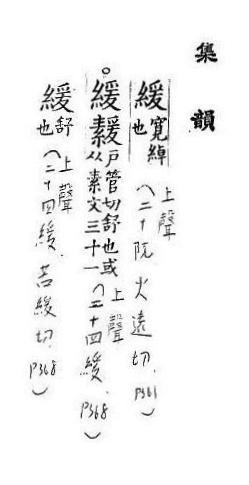 集韻
緩 寬綽也 (上聲 二十阮 火遠切 P361)
。緩𦆀 戶管切舒也或从素文三十一 (上聲 二十四緩 P368)
緩 舒也 (上聲 二十四緩 苦緩切 P368)